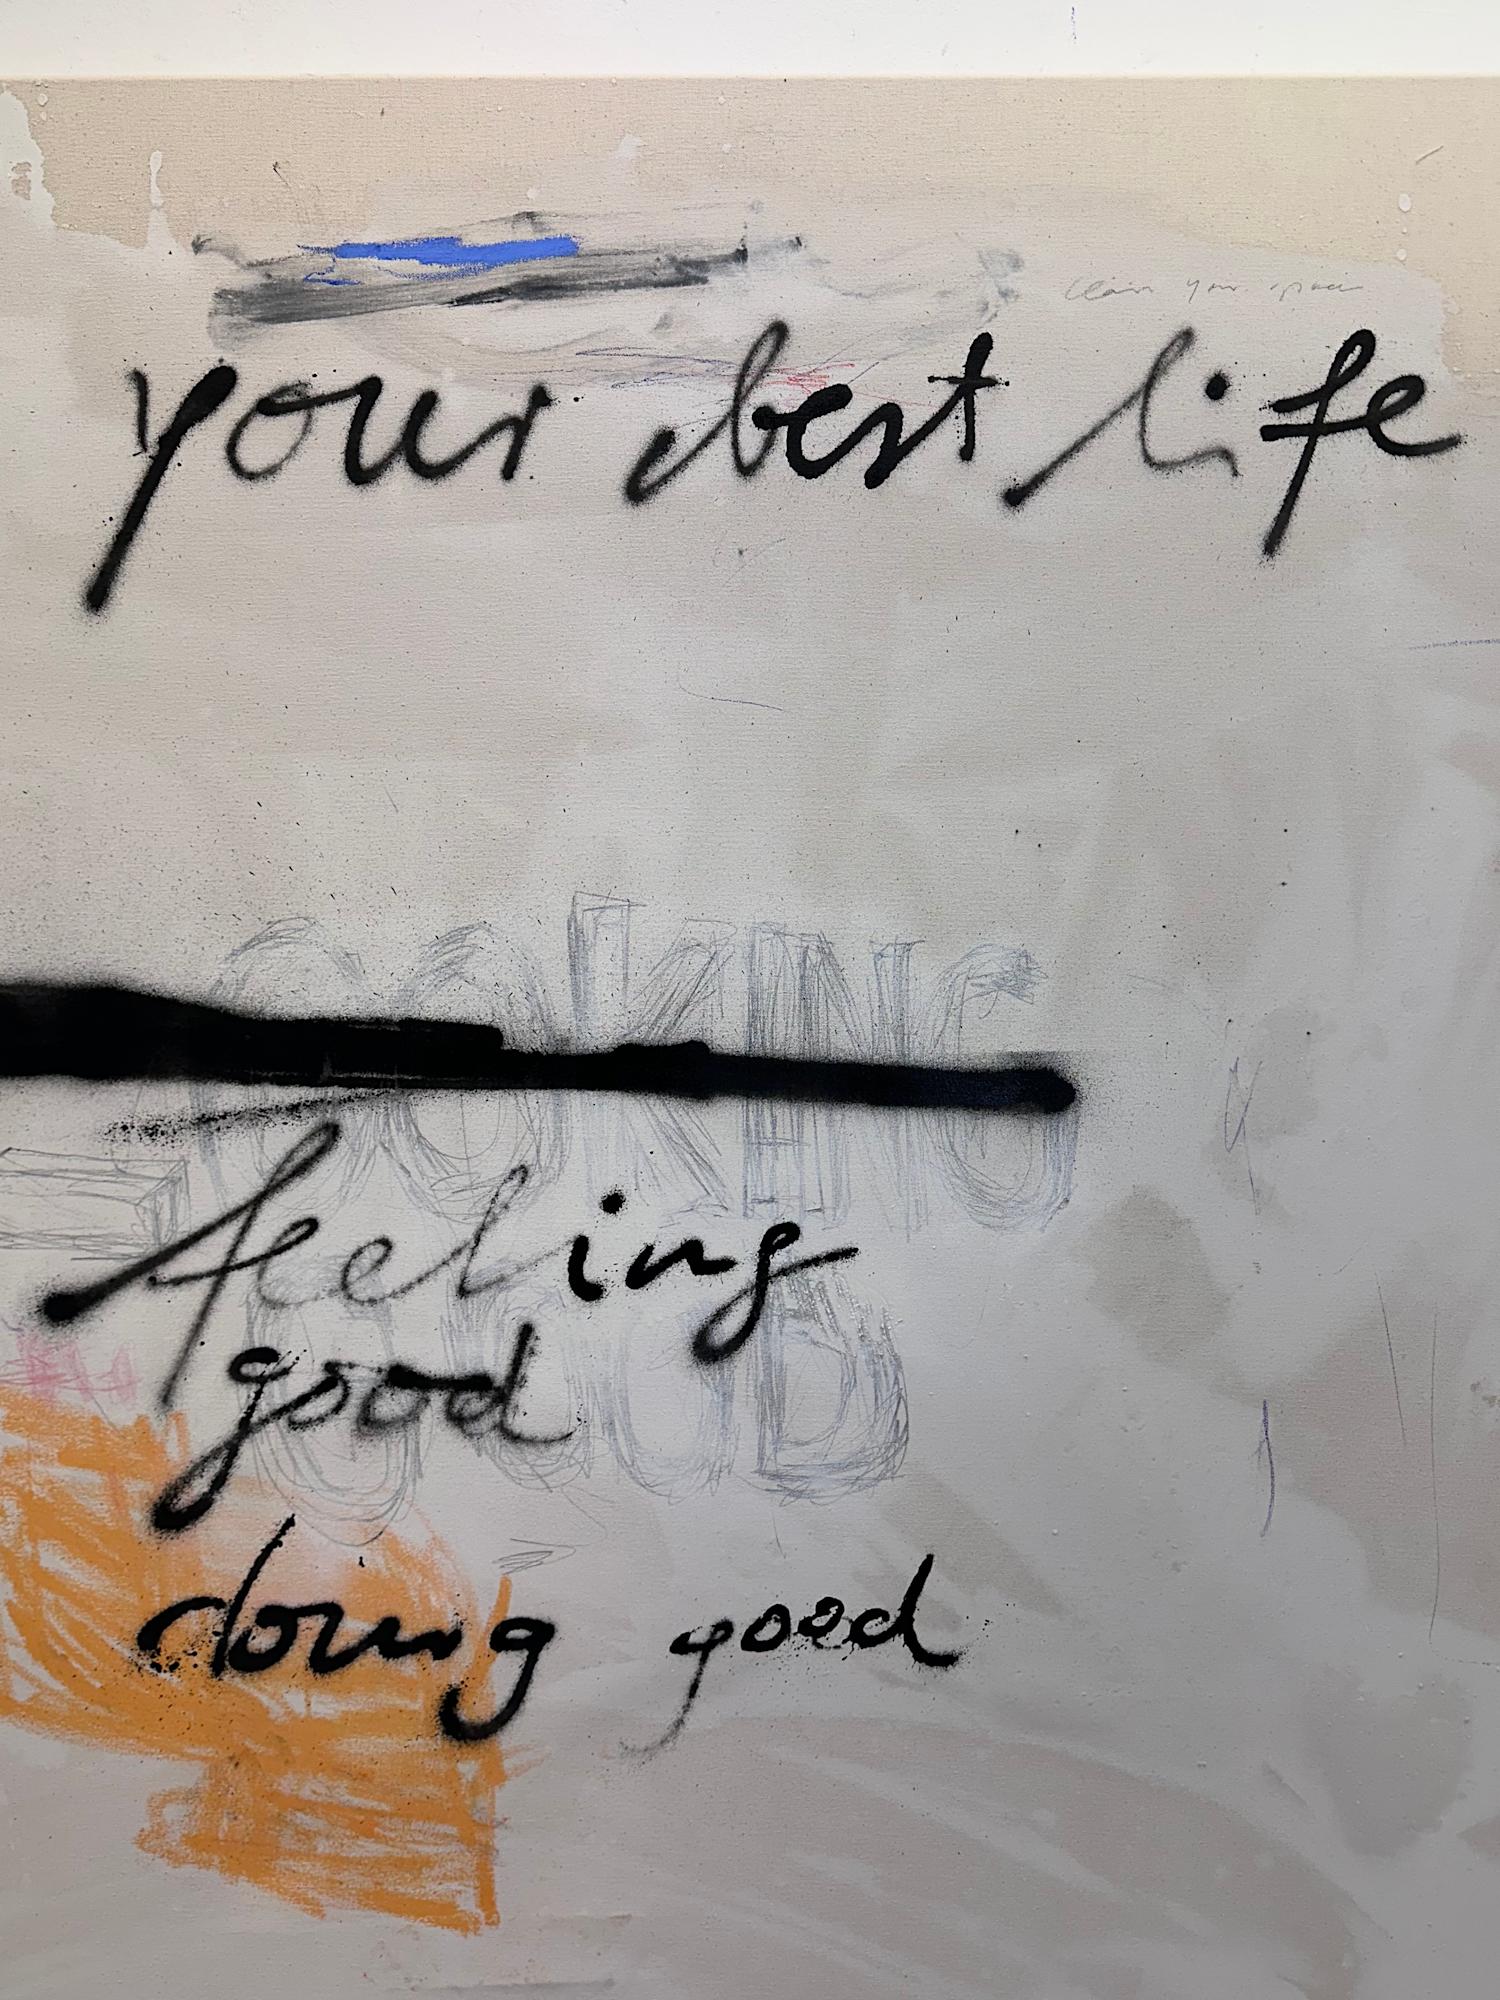 claim your space
your best life
LOOKING
feeling
GOOD
good
doing good